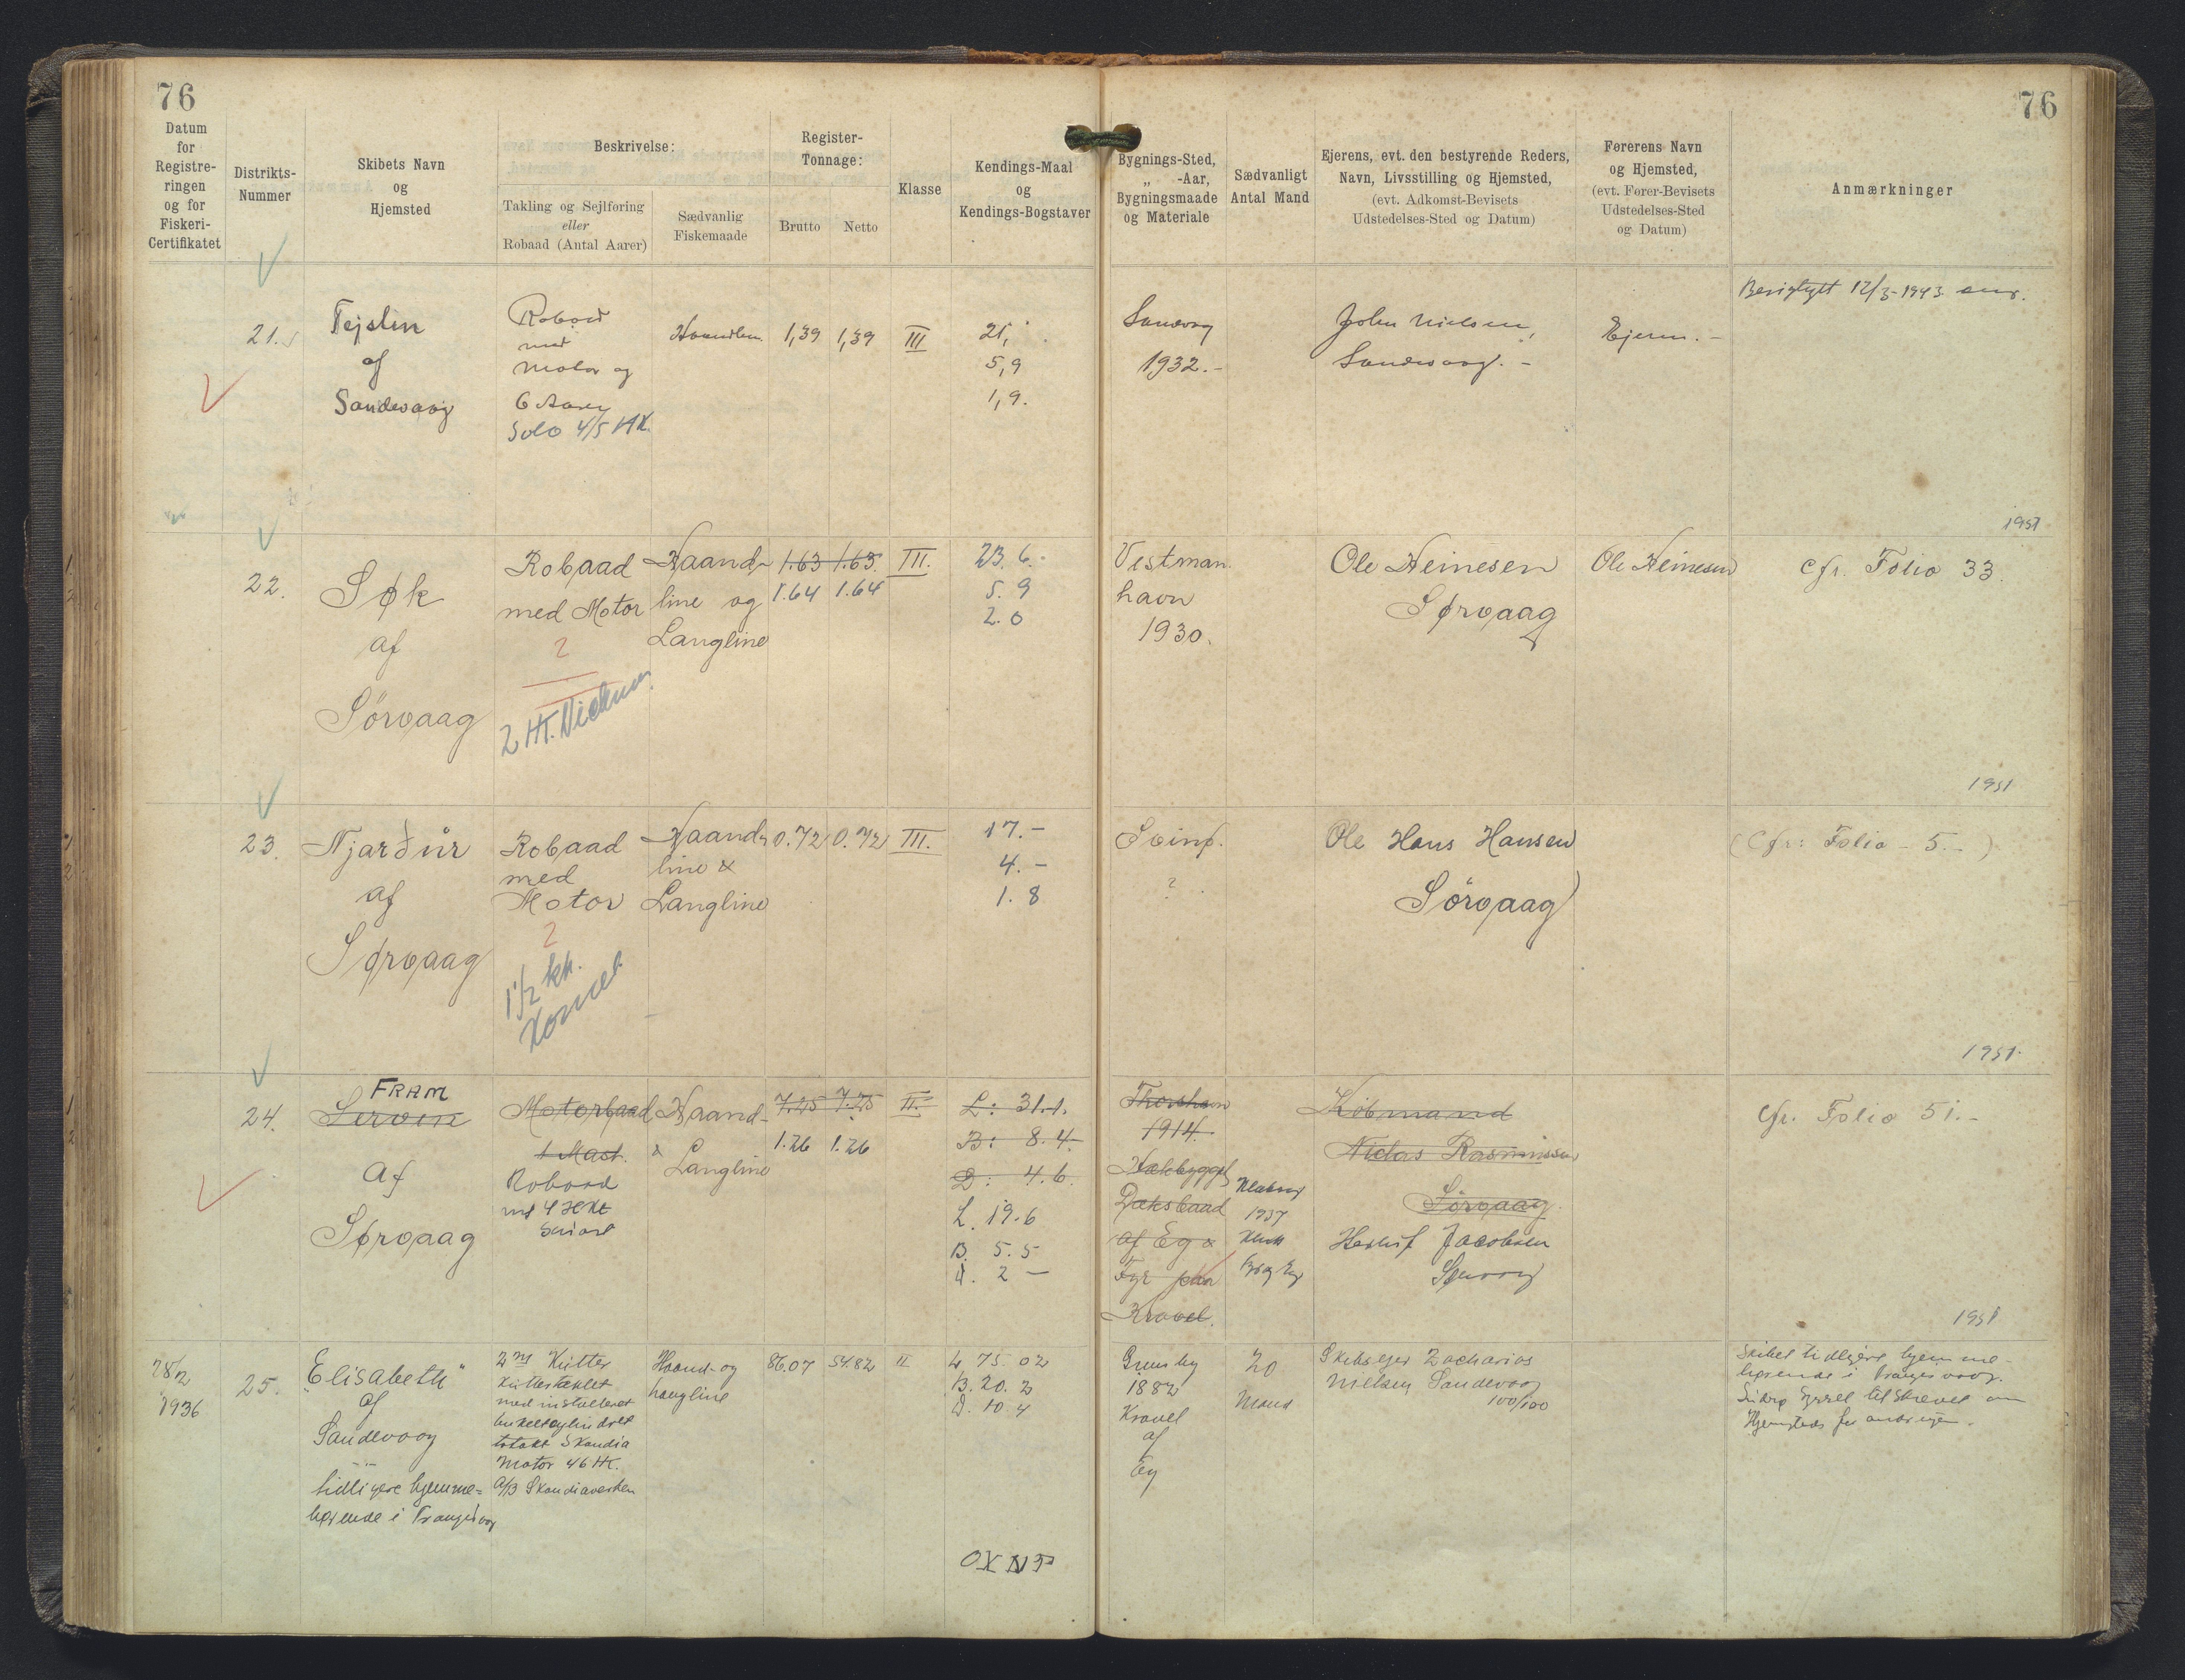 76
76
Datum
for
Registre-
ringen
og for
Fiskeri-
Certifikatet
Distrikts-
Nummer
Skibets Navn
og
Hjemsted
Beskrivelse:
Takling og Sejlføring
eller
Robaad (Antal Aarer)
Sædvanlig
Fiskemaade
Register-
Tonnage:
Brutto
Netto
Klasse
Kendings-Maal
og
Kendings-Bogstaver
Bygnings-Sted,
„ -Aar,
Bygningsmaade
og Materiale
Sædvanligt
Antal Mand
Ejerens, evt. den bestyrende Reders,
Navn, Livsstilling og Hjemsted,
(evt. Adkomst-Bevisets
Udstedelses-Sted og Datum)
Førerens Navn
og Hjemsted,
(evt. Fører-Bevisets
Udstedelses-Sted
og Datum)
Anmærkninger
21.
Tejstin
af
Sandevaag
Robaad
med
Motor og
6 Aarer
Solo 4/5 HK.
1,39
1,39
III
21,
5,9
1,9.
Sandvag
1932.-
John Nielsen,
Sandevaag. -
Ejeren. -
12/3-1943
1951
22.
Søk
af
Sörvaag
Robaad
med Motor
2
2 HK.
Haand-
line og
Langline
1.63
1.64
1.63.
1.64
III.
23. 6.-
5. 9
2. 0
Vestman.
havn
1930.
Ole Heinesen
Sørvaag
Ole Heinesen
Cfr. Folio 33.
1951
23.
Njarður
af
Sørvaag
Robaad
med
Motor
2
1½ hk.
Haand-
line &
Langline
0.72
0.72
III.
17.-
4.-
1. 8
Svinø.
?
Ole Hans Hansen
Sörvaag
(Cfr: Folio - 5. - )
1951.
24.
FRAM
af
Sørvaag
Motorbaad
1 Mast.
Robaad
Haand-
&
Langline
7.25
1.26
7.25
1.26
II.
L: 31.1.
B: 8.4
D: 4.6.
L. 19.6
B. 5.5
d. 2 -
Thorshavn
1914.
Hækbygget
Dæksbaad
af Eg &
Fyr paa
Kravel.
1937
Köbmand
Niclas Rasmussen
Sörvaag.
Jacobsen
Cfr. Folio 51.-
1951
28/12
1936
25.
„Elisabeth“
af
Sandevaag
tidligere hjemme-
hørende i Trangisvaag
2 m Kutter
Kuttertaklet
med installeret
totakt Skandia
Motor 46 HK.
A/B Skandiaverken
Haand- og
Langline
86.07
54.82
II
L 75. 02
B. 20. 2
D. 10. 4
OXNP
Grimsby
1882
Kravel
af
Eg
20
Mand
Skibsejer Zacharias
Nielsen Sandevaag
100/100
Skibet tidligere hjemme-
hørende i Trangisvaag.